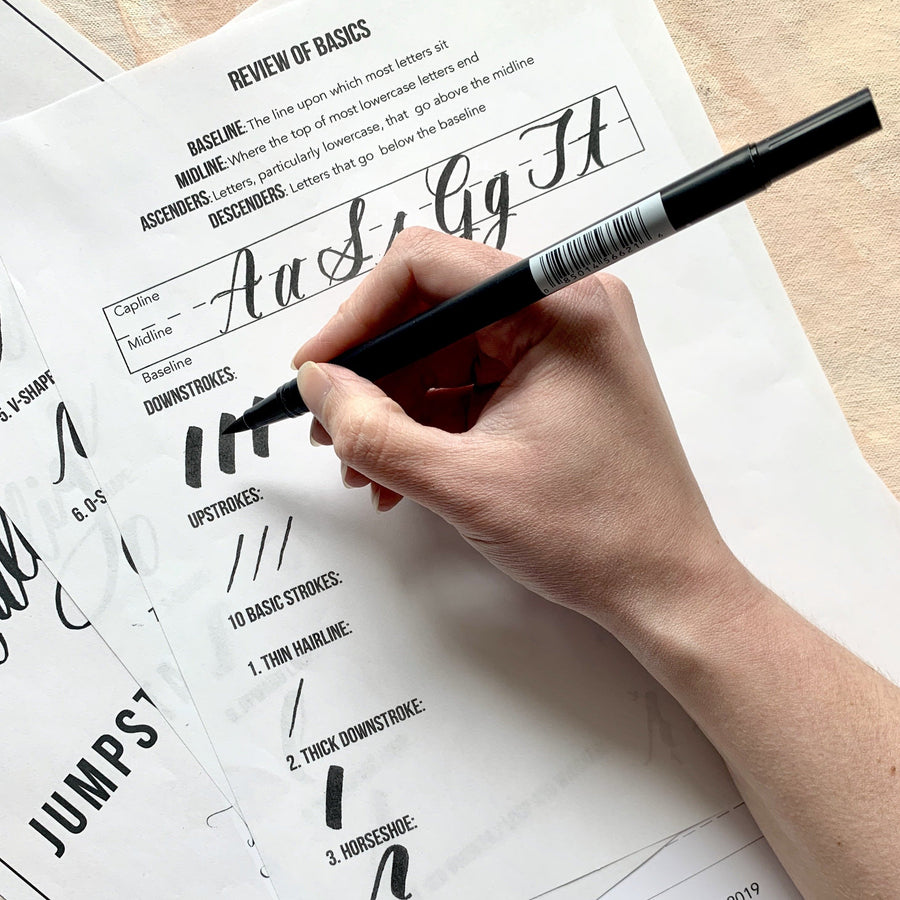 REVIEW OF BASICS
BASELINE: The line upon which most letters sit
MIDLINE: Where the top of most lowercase letters end
ASCENDERS: Letters, particularly lowercase, that go above the midline
DESCENDERS: Letters that go below the baseline
Capline
Midline
Baseline
Aa Ss Gg Tt
DOWNSTROKES:
UPSTROKES:
10 BASIC STROKES:
1. THIN HAIRLINE:
2. THICK DOWNSTROKE:
3. HORSESHOE:
5. V-SHAPE
6. O-S
JUMPST
2019